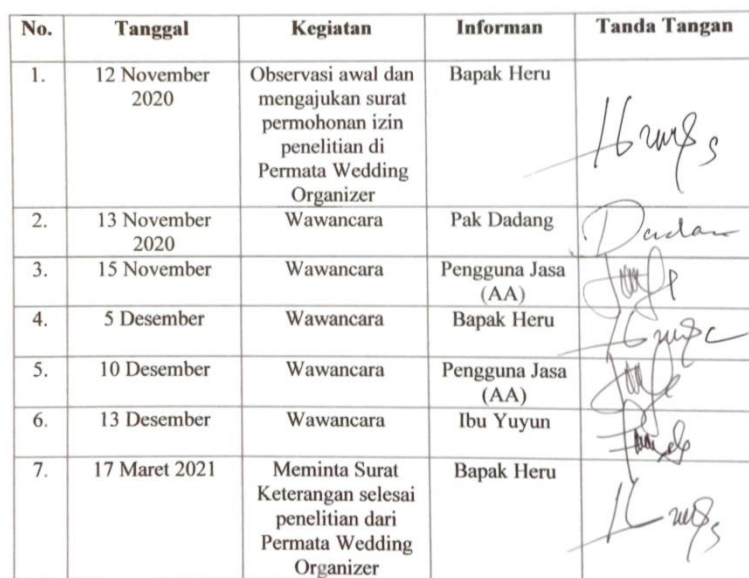 No. Tanggal Kegiatan Informan Tanda Tangan
1. 12 November Observasi awal dan Bapak Heru
2020 mengajukan surat
permohonan izin
penelitian di
Permata Wedding
Organizer
2. 13 November Wawancara Pak Dadang
2020
3. 15 November Wawancara Pengguna Jasa
(AA)
4. 5 Desember Wawancara Bapak Heru
5. 10 Desember Wawancara Pengguna Jasa
(AA)
6. 13 Desember Wawancara Ibu Yuyun
7. 17 Maret 2021 Meminta Surat Bapak Heru
Keterangan selesai
penelitian dari
Permata Wedding
Organizer